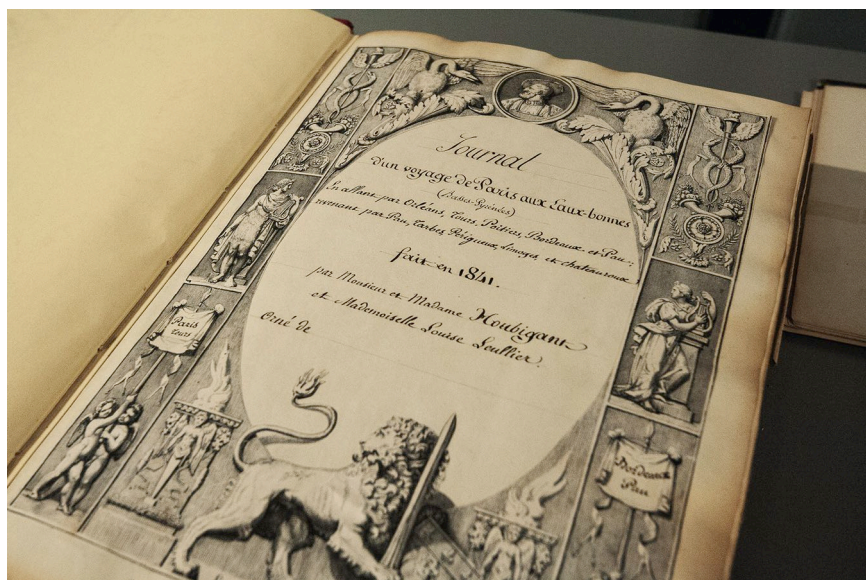 Journal
d'un voyage de Paris aux Eaux-bonnes
(Basses-Pyrénées)
En allant par Orléans, Tours, Poitiers, Bordeaux et Pau;
revenant par Pau, Tarbes, Périgueux, Limoges, et chateauroux
fait en 1841.
par Monsieur et Madame Houbigant
et Mademoiselle Louise Leullier.
Orné de
Paris
Tours
Bordeaux
Pau